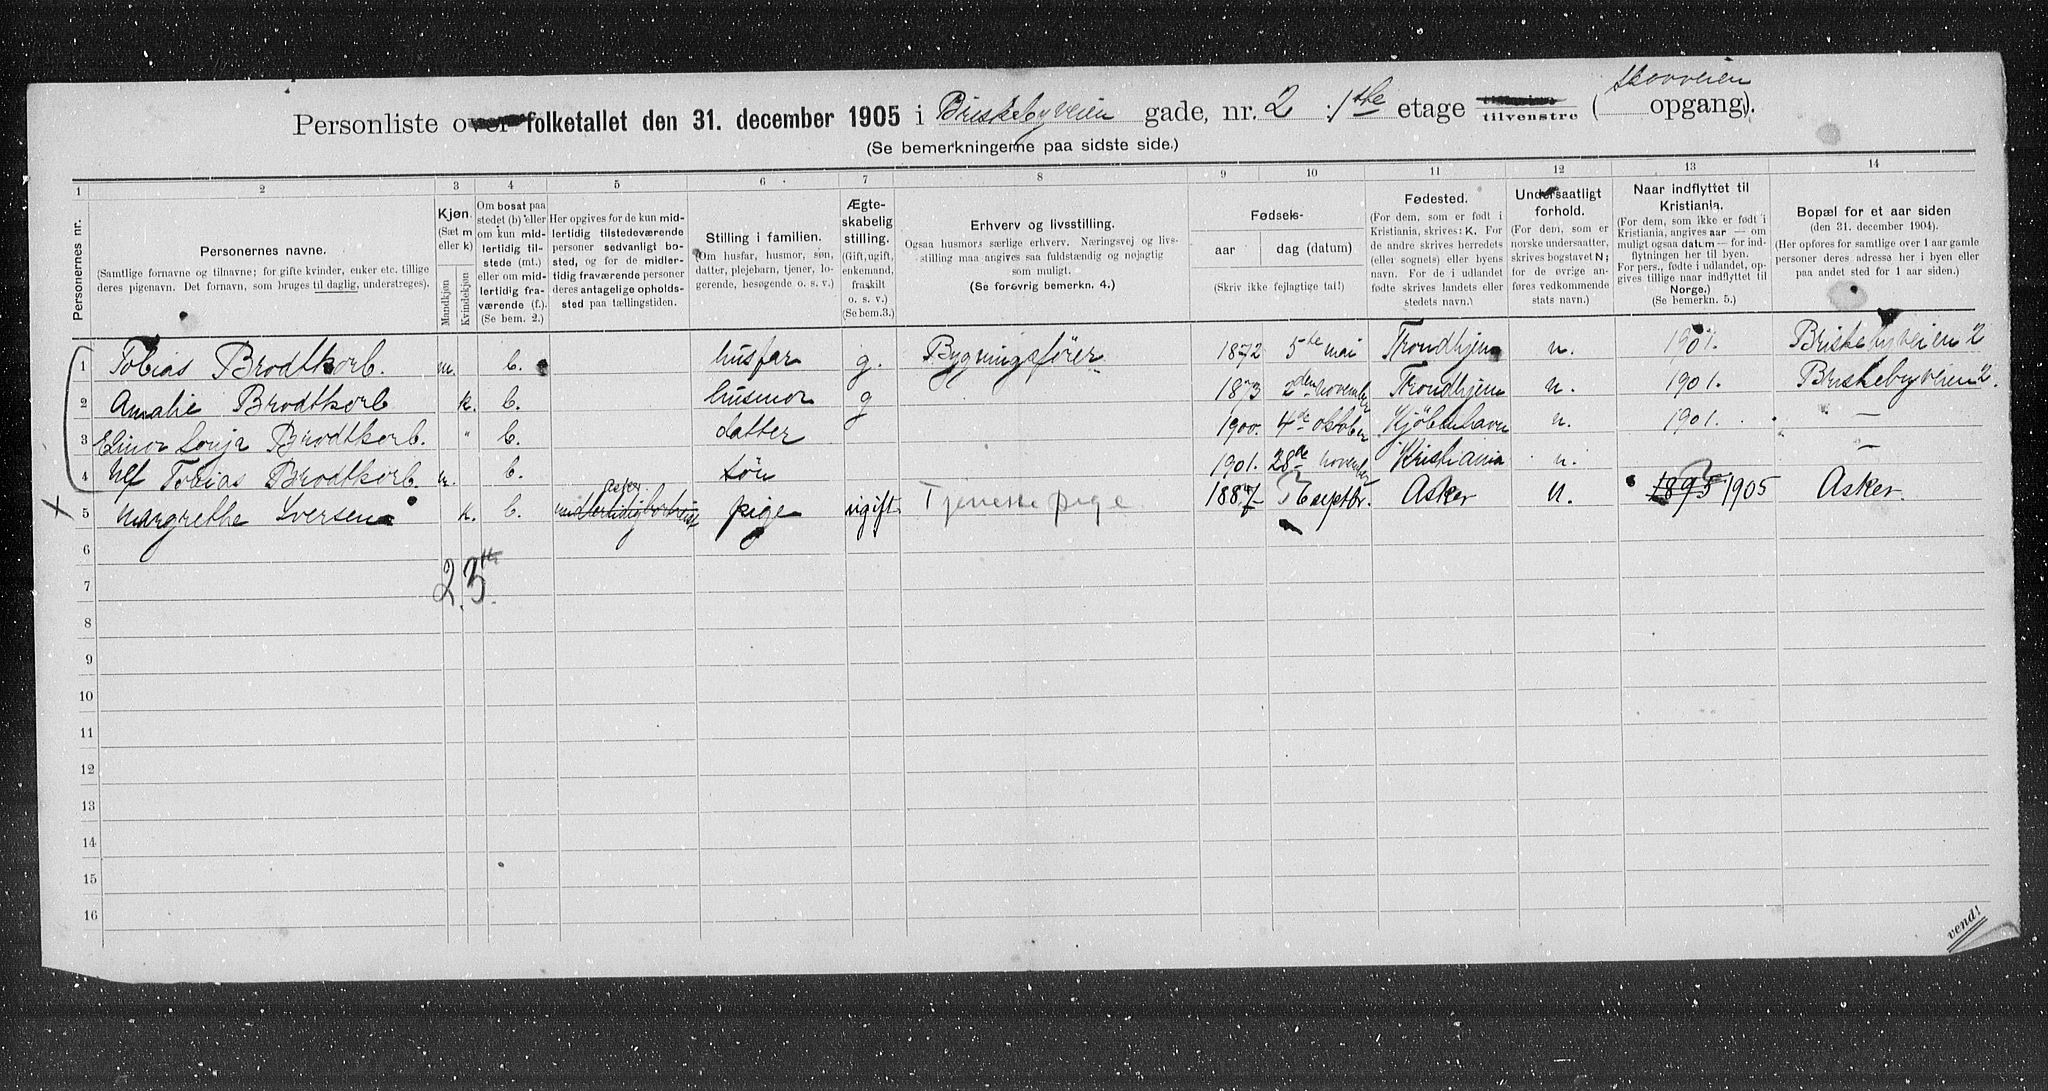 Personliste over folketallet den 31. december 1905 i Briskebyveien gade, nr. 2 : 1ste etage tilvenstre ( Skovveien opgang).
(Se bemerkningerne paa sidste side.)
1 2 3 4 5 6 7 8 9 10 11 12 13 14
Personernes nr.
Personernes navne.
(Samtlige fornavne og tilnavne; for gifte kvinder, enker etc. tillige
deres pigenavn. Det fornavn, som bruges til daglig, understreges).
Kjøn.
(Sæt m
eller k)
Mandkjøn
Kvindekjøn
Om bosat paa
stedet (b) eller
om kun mid-
lertidig til-
stede (mt.)
eller om mid-
lertidig fra-
værende (f.).
(Se bem. 2.)
Her opgives for de kun mid-
lertidig tilstedeværende
personer sedvanligt bo-
sted, og for de midler-
tidig fraværende personer
deres antagelige opholds-
sted paa tællingstiden.
Stilling i familien.
(Om husfar, husmor, søn,
datter, plejebarn, tjener, lo-
gerende, besøgende o. s. v.)
Ægte-
skabelig
stilling.
(Gift, ugift,
enkemand,
fraskilt
o. s. v.)
(Se bem. 3.)
Erhverv og livsstilling.
Ogsaa husmors særlige erhverv. Næringsvej og livs-
stilling maa angives saa fuldstændig og nøjagtig
som muligt.
(Se forøvrig bemerkn. 4.)
Fødsels-
aar dag (datum)
(Skriv ikke fejlagtige tal!)
Fødested.
(For dem, som er født i
Kristiania, skrives: K. For
de andre skrives herredets
(eller sognets) eller byens
navn. For de i udlandet
fødte skrives landets eller
stedets navn.)
Undersaatligt
forhold.
(For dem, som er
norske undersaatter,
skrives bogstavet N;
for de øvrige an-
føres vedkommende
stats navn.)
Naar indflyttet til
Kristiania.
(For dem, som ikke er født i
Kristiania, angives aar — om
muligt ogsaa datum — for ind-
flytningen her til byen.
For pers., fødte i udlandet, op-
gives tillige naar indflyttet til
Norge.)
(Se bemerkn. 5.)
Bopæl for et aar siden
(den 31. december 1904).
(Her opføres for samtlige over 1 aar gamle
personer deres adresse her i byen eller
paa andet sted for 1 aar siden.)
1 Tobias Brodtkorb. m. b. husfar g. Bygningsfører 1872 5te mai Trondhjem n. 1901. Briskebyveien 2
2 Amalie Brodtkorb k. b. husmor g 1873 2den november Trondhjem n. 1901. Briskebyveien 2.
3 Elinor Sonja Brodtkorb. " b. datter 1900. 4de oktober Kjøbenhavn n. 1901. " —
4 Ulf Tobias Brodtkorb. m. b. søn 1901. 28de november Kristiania n. —
X 5 Margrethe Iversen k. b. Asker midlertidig bortreist pige ugift Tjenestepige 1887 septbr. Asker N. 1895 1905 Asker.
6
23
7
8
9
10
11
12
13
14
15
16
vend!